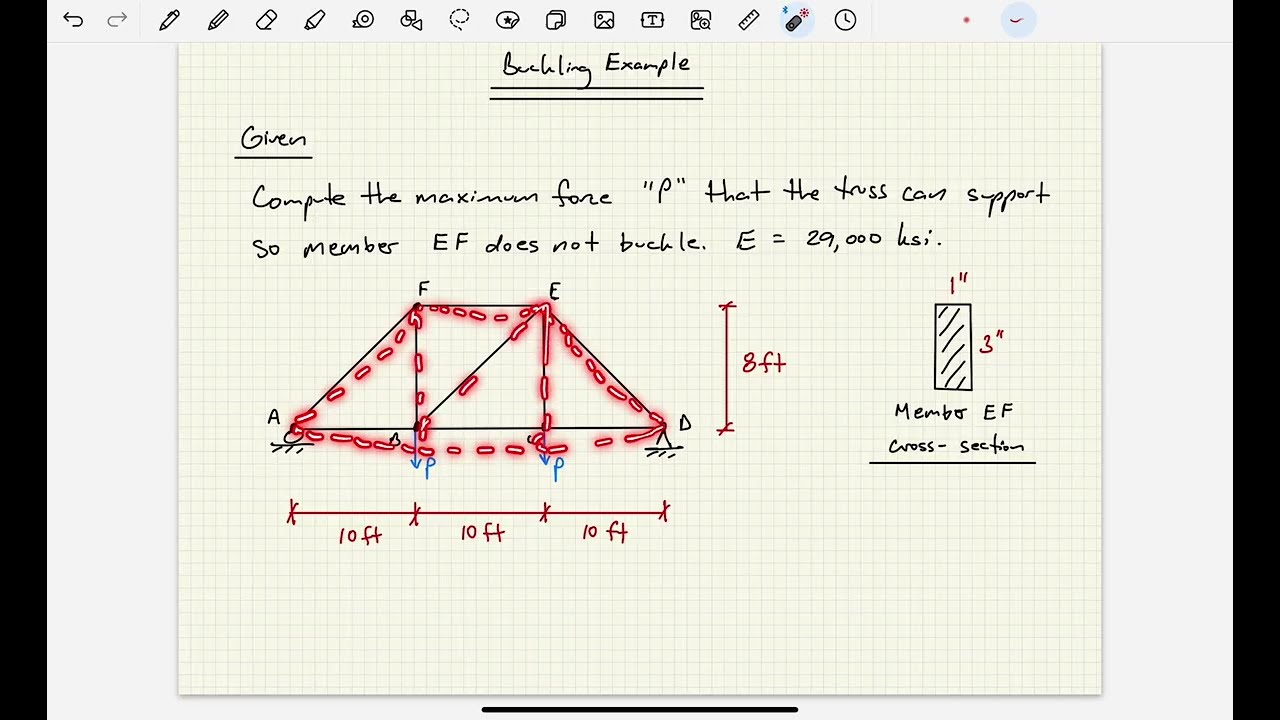 Buckling Example
Given
Compute the maximum force "P" that the truss can support
so member EF does not buckle. E = 29,000 ksi.
1"
F
E
3"
8ft
A
B
C
D
Member EF
cross-section
P
P
10ft
10ft
10ft